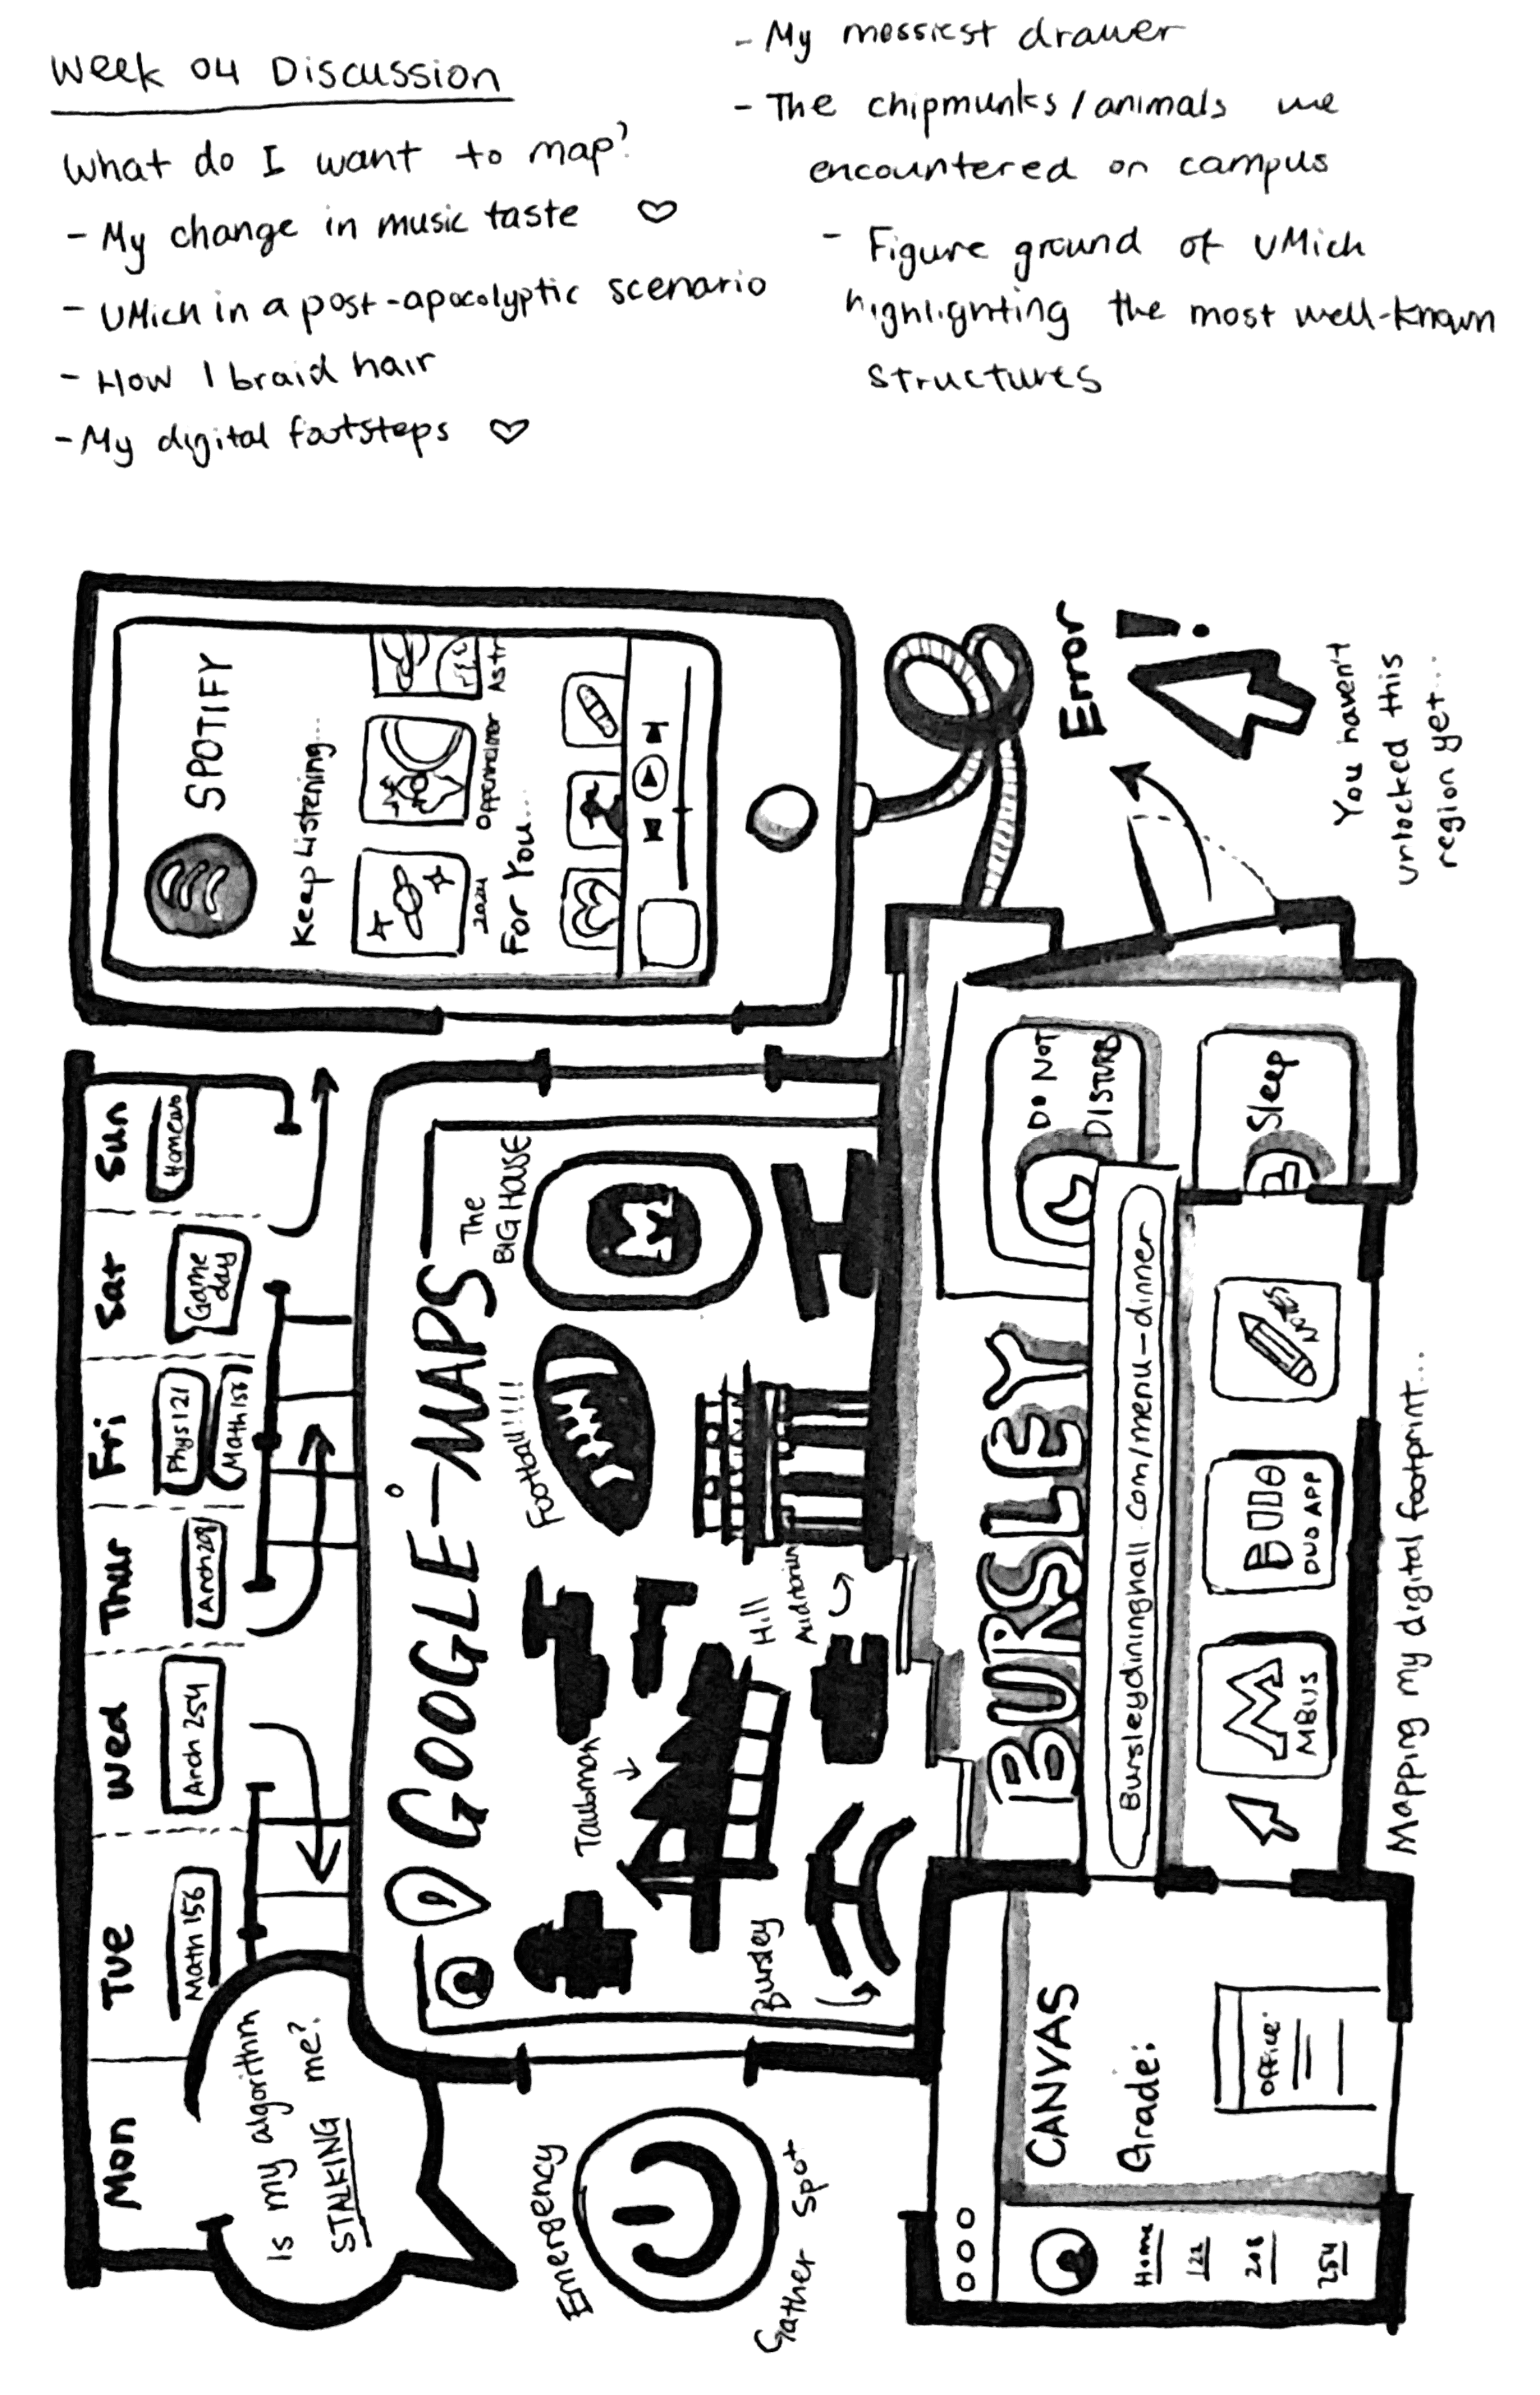 Week 04 Discussion
What do I want to map?
- My change in music taste ♡
- UMich in a post-apocolyptic scenario
- How I braid hair
- My digital footsteps ♡
- My messiest drawer
- The chipmunks/animals we
encountered on campus
- Figure ground of UMich
highlighting the most well-known
structures
Mon
Tue
Wed
Thur
Fri
Sat
Sun
Math 156
Arch 254
Arch 208
Phys 121
Math 156
Game
day
Is my algorithm
STALKING me?
SPOTIFY
Keep Listening...
2024
Oppenheimer
Astr
For You...
GOOGLE-MAPS
The
BIG HOUSE
Football!!!!
Taubman
Hill
Auditorium
Bursley
Emergency
Gather Spot
Error
!
You haven't
unlocked this
region yet...
DO NOT
DISTURB
Sleep
BURSLEY
Bursleydininghall.com/menu-dinner
MBUS
DUO APP
Notes
CANVAS
Grade:
Home
122
208
254
OFFICE:
Mapping my digital footprint...